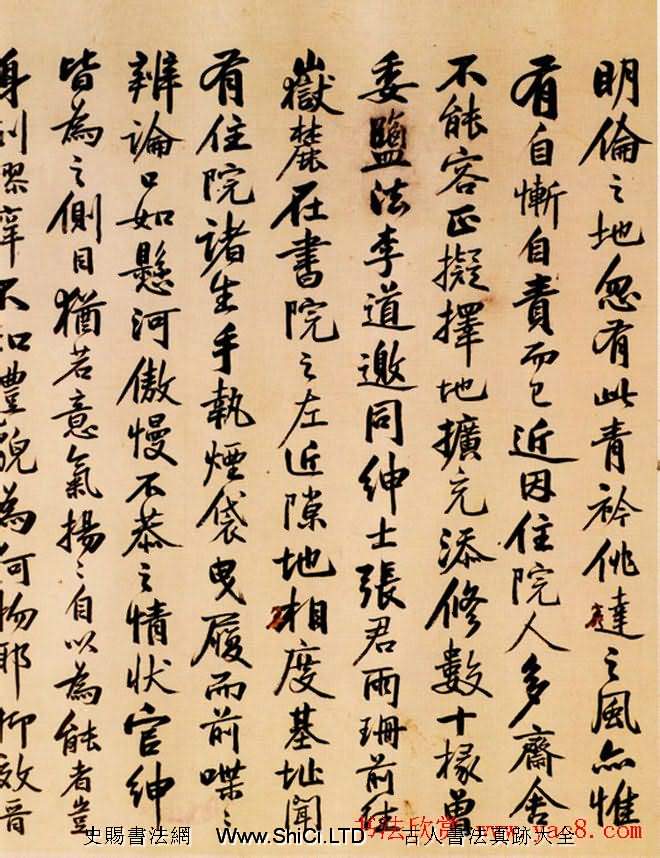 明倫之地忽有此青衿佻達之風亦惟
有自慚自責而已近因住院人多齋舍
不能容正擬擇地擴充添修數十椽曾
委鹽法李道邀同紳士張君雨珊前往
嶽麓在書院之左近隙地相度基址聞
有住院諸生手執煙袋曳履而前喋〻
辨論口如懸河傲慢不恭之情狀官紳
皆為之側目猶若意氣揚〻自以為能者豈
身列膠庠不知豊貌為何物耶抑效晉
史賜書法網 Www.ShiCi.LTD 古人書法真跡大全
书法欣赏 www.yac8.com